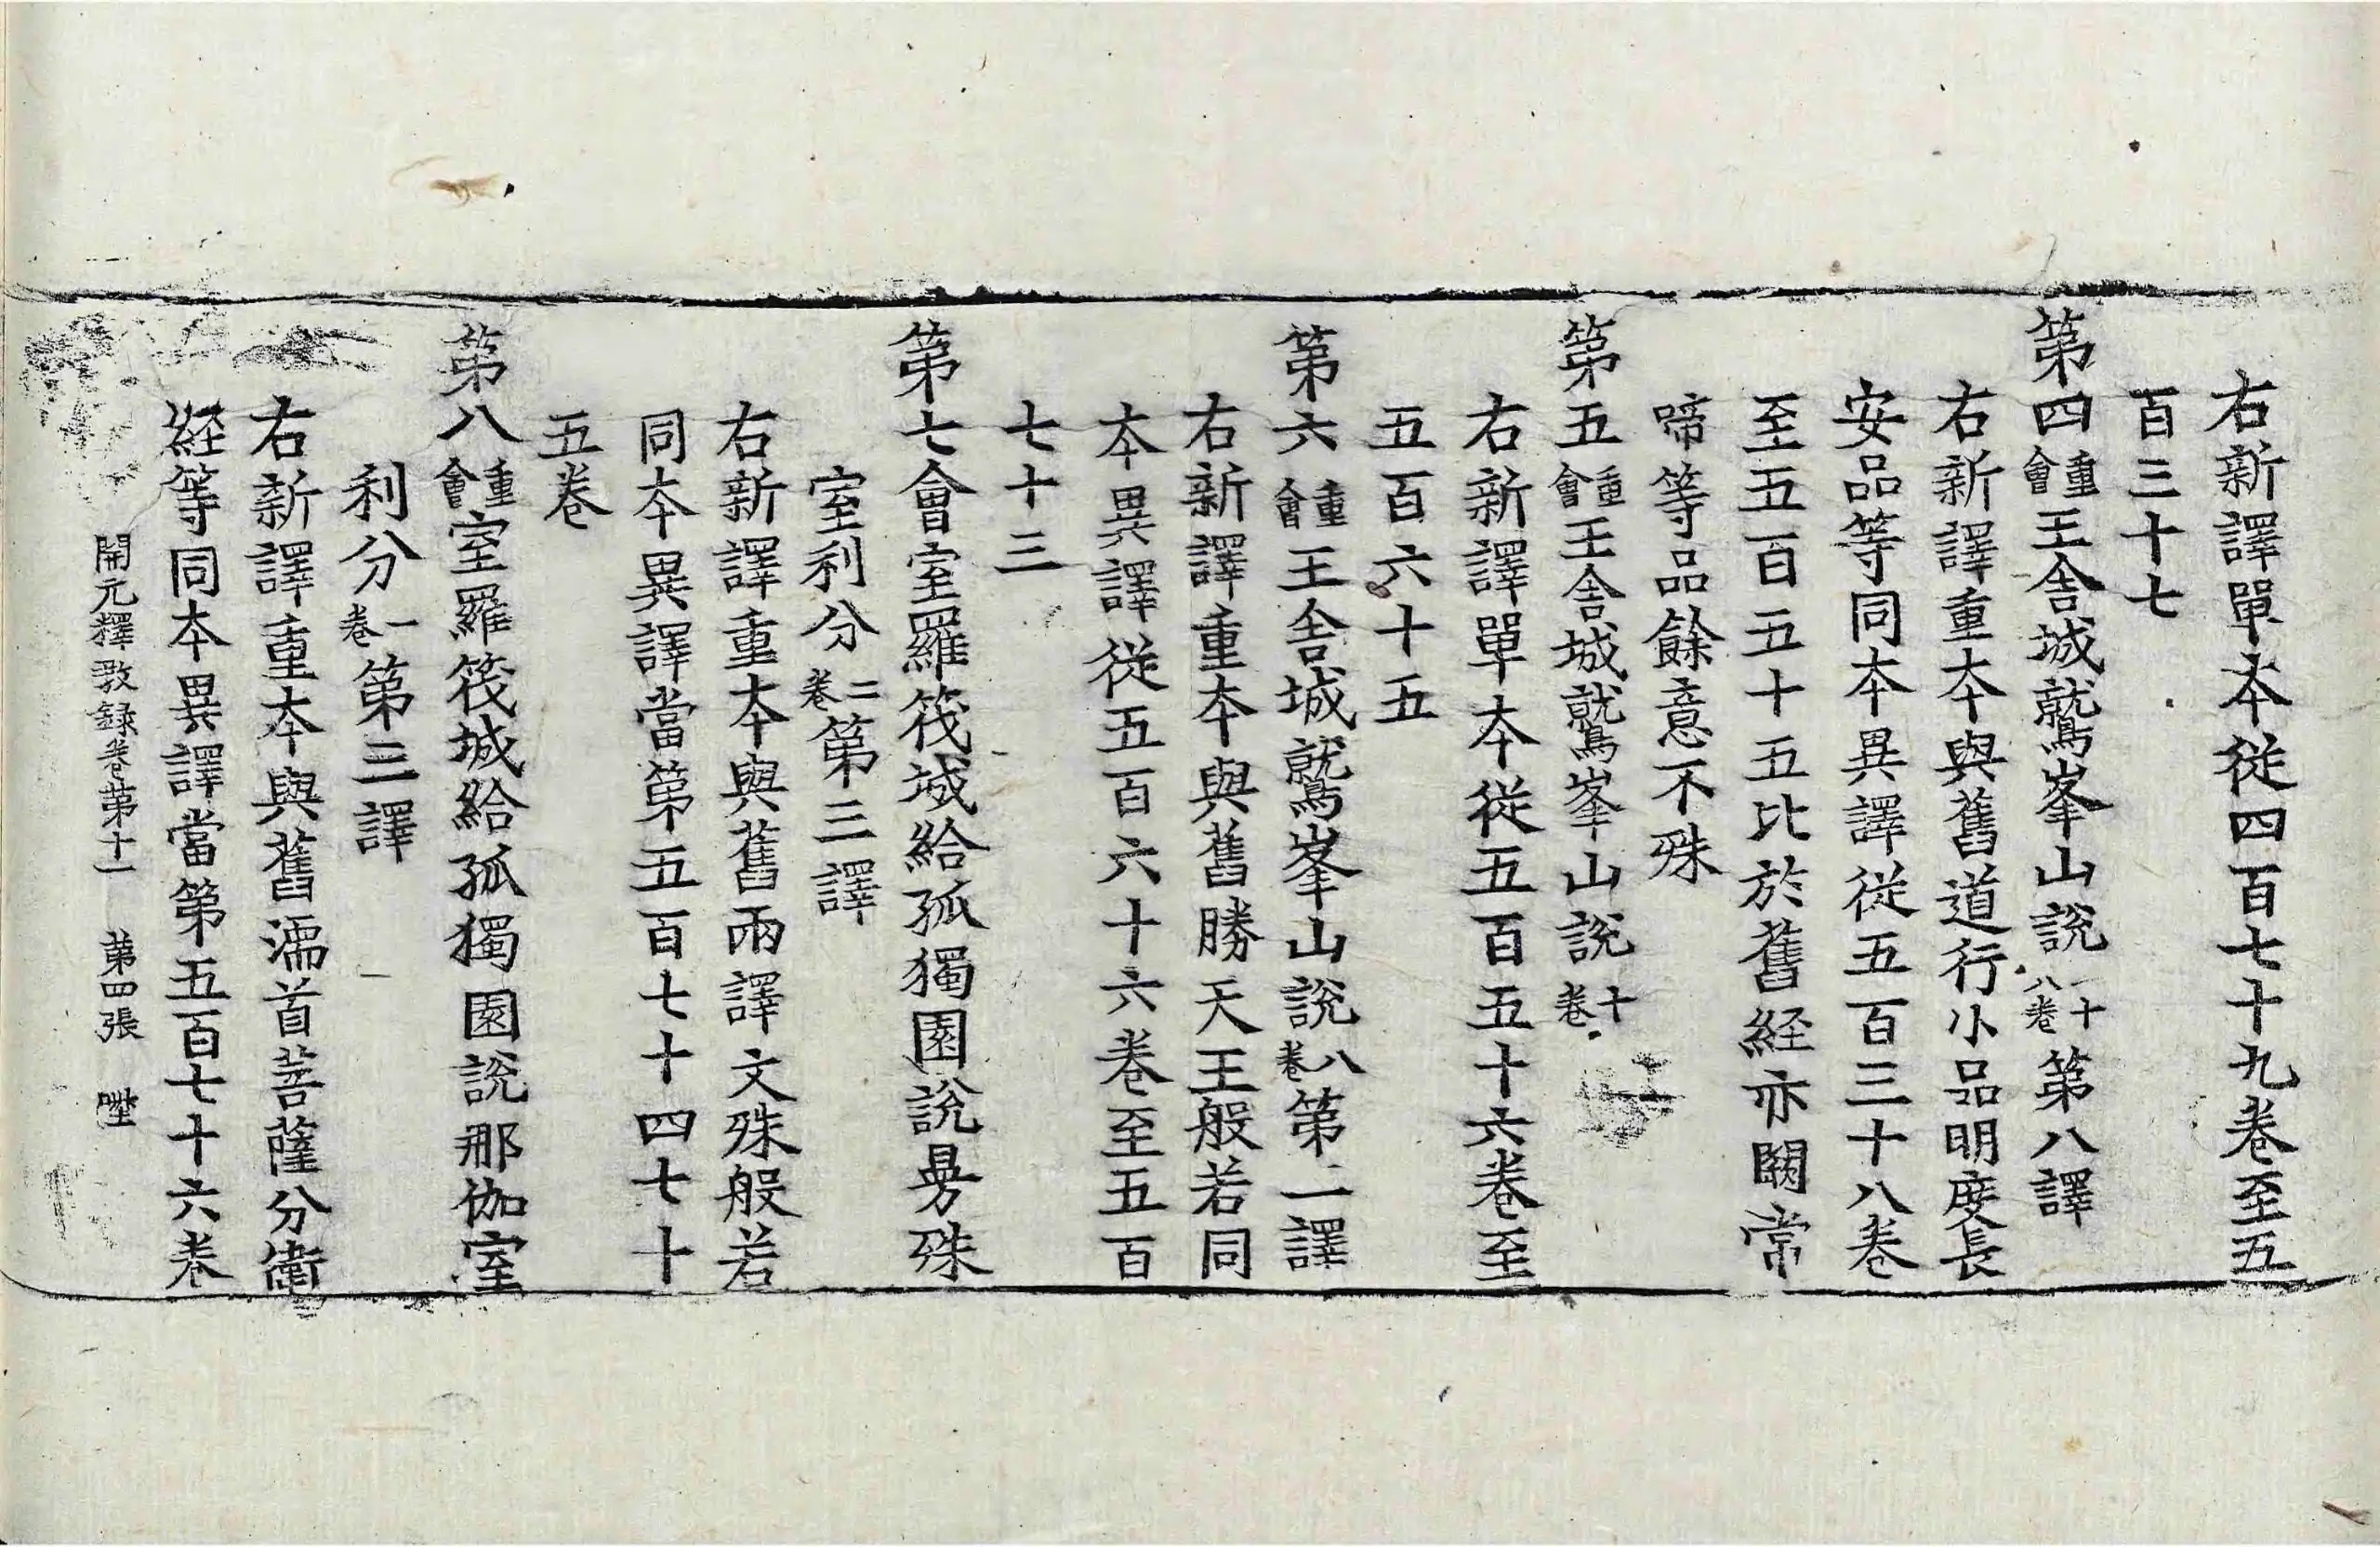 右新譯單本從四百七十九卷至五
百三十七
第四重會王舍城鷲峯山說一十八卷第八譯
右新譯重本與舊道行小品明度長
安品等同本異譯從五百三十八卷
至五百五十五比於舊経亦闕常
啼等品餘意不殊
第五重會王舍城鷲峯山說十卷
右新譯單本從五百五十六卷至
五百六十五
第六重會王舍城鷲峯山說八卷第二譯
右新譯重本與舊勝天王般若同
本異譯從五百六十六卷至五百
七十三
第七會室羅筏城給孤獨園說曼殊
室利分二卷第三譯
右新譯重本與舊兩譯文殊般若
同本異譯當第五百七十四七十
五卷
第八重會室羅筏城給孤獨園說那伽室
利分一卷第三譯
右新譯重本與舊濡首菩薩分衛
経等同本異譯當第五百七十六卷
開元釋教録卷第十一 第四張 陛